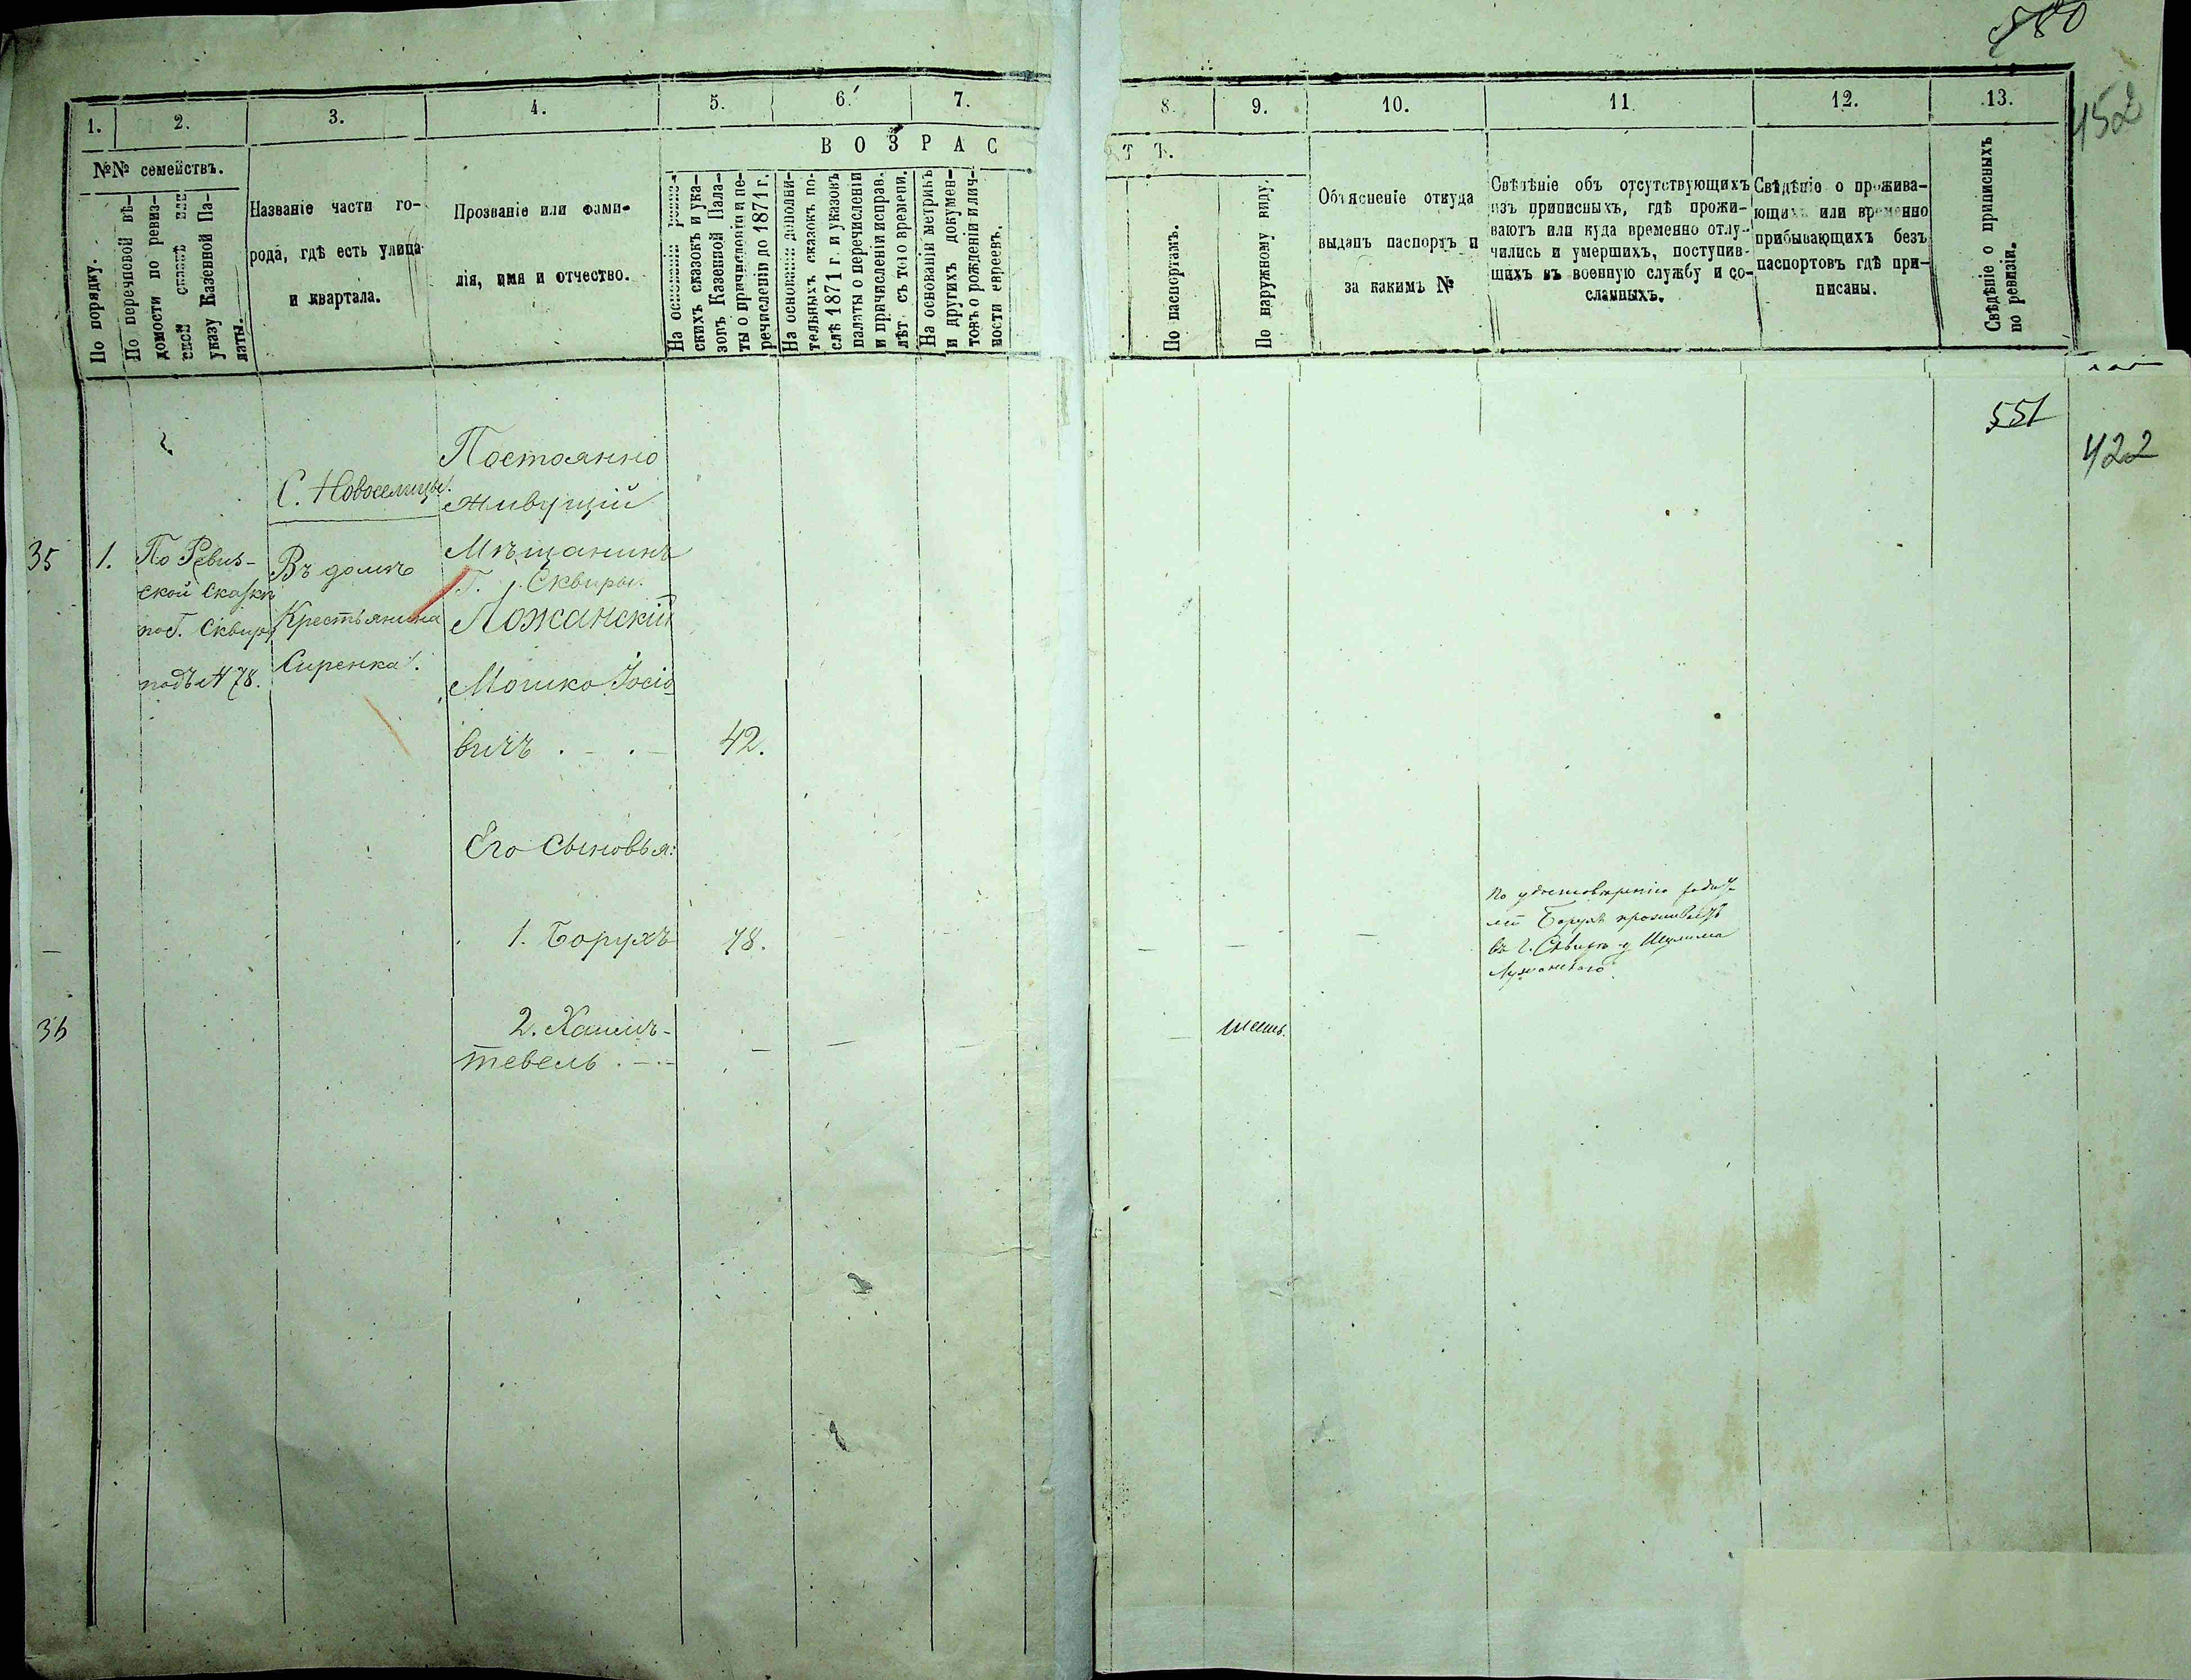 580
452
1.
2.
3.
4.
5.
6.
7.
8.
9.
10.
11.
12.
13.
№№ семействъ.
В О З Р А С
Т Ъ.
По порядку.
По перечновой вѣ-
домости по ревиз-
ской сказкѣ или
указу Казенной Па-
латы.
Названіе части го-
рода, гдѣ есть улица
и квартала.
Прозваніе или фами-
лія, имя и отчество.
На основаніи ревиз-
скихъ сказокъ и ука-
зовъ Казенной Пала-
ты о причисленіи и пе-
речисленіи до 1871 г.
На основаніи дополни-
тельныхъ сказокъ по-
слѣ 1871 г. и указовъ
палаты о перечисленіи
и причисленіи исправ.
лѣт съ того времени.
На основаніи метрикъ
и другихъ докумен-
товъ о рожденіи и лич-
ности евреевъ.
По паспортамъ.
По наружному виду.
Объясненіе откуда
выданъ паспортъ и
за какимъ №
Свѣдѣніе объ отсутствующихъ
изъ приписныхъ, гдѣ прожи-
ваютъ или куда временно отлу-
чились и умершихъ, поступив-
шихъ въ военную службу и со-
сланныхъ.
Свѣдѣніе о прожива-
ющихъ или временно
прибывающихъ безъ
паспортовъ гдѣ при-
писаны.
Свѣдѣніе о приписныхъ
по ревизіи.
551
422
С. Новоселицы.
Постоянно
живущій
35
1.
По Ревиз-
ской Сказкѣ
по г. Сквирѣ
подъ № 78.
Въ домѣ
Крестьянина
Сиренка.
Мѣщанинъ
Г. Сквиры.
Ложанскій
Мошко Іосіо
вичъ . - . -
42.
Его Сыновья:
1. Борухъ
18.
По удостовѣренію
Борухъ проживаетъ
въ г. Сквирѣ у Шулима
Лужанскаго.
36
2. Хаимъ-
тевель . - . -
шесть.